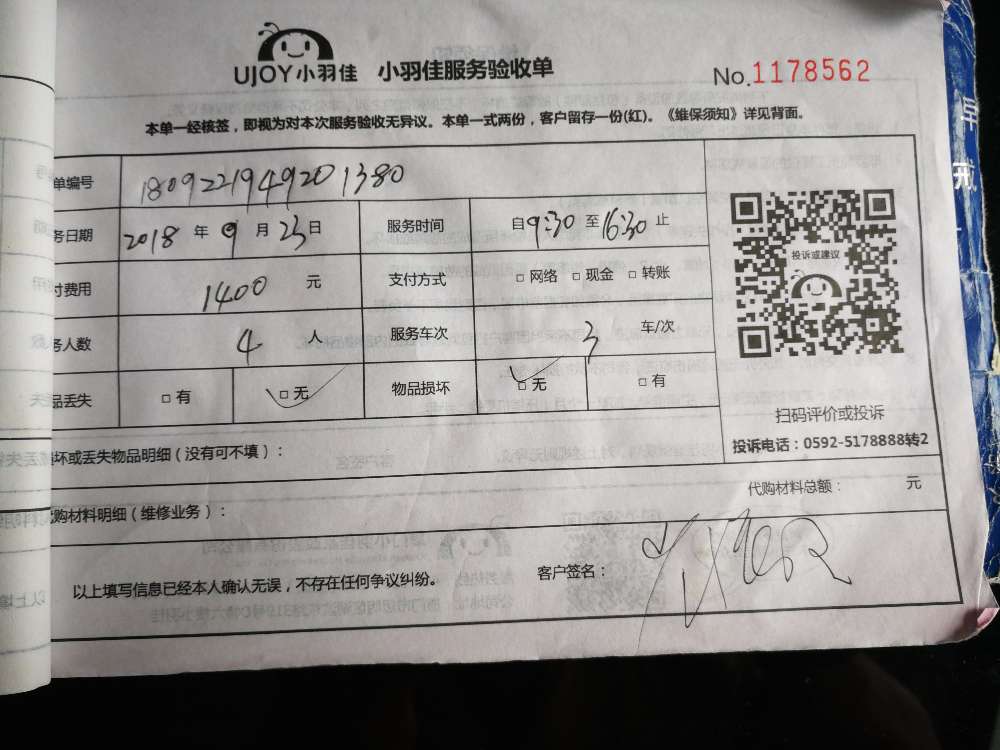 UJOY小羽佳 小羽佳服务验收单 No.1178562
本单一经核签，即视为对本次服务验收无异议。本单一式两份，客户留存一份(红)。《维保须知》详见背面。
单编号 180922194920 1380
务日期 2018 年 9 月 23 日 服务时间 自9:30 至16:30 止
付费用 1400 元 支付方式 □ 网络 □ 现金 □ 转账
务人数 4 人 服务车次 3 车/次
品丢失 □ 有 □ 无 物品损坏 □ 无 □ 有
投诉或建议
扫码评价或投诉
投诉电话：0592-5178888转2
坏或丢失物品明细（没有可不填）：
代购材料总额： 元
购材料明细（维修业务）：
以上填写信息已经本人确认无误，不存在任何争议纠纷。 客户签名：
戒